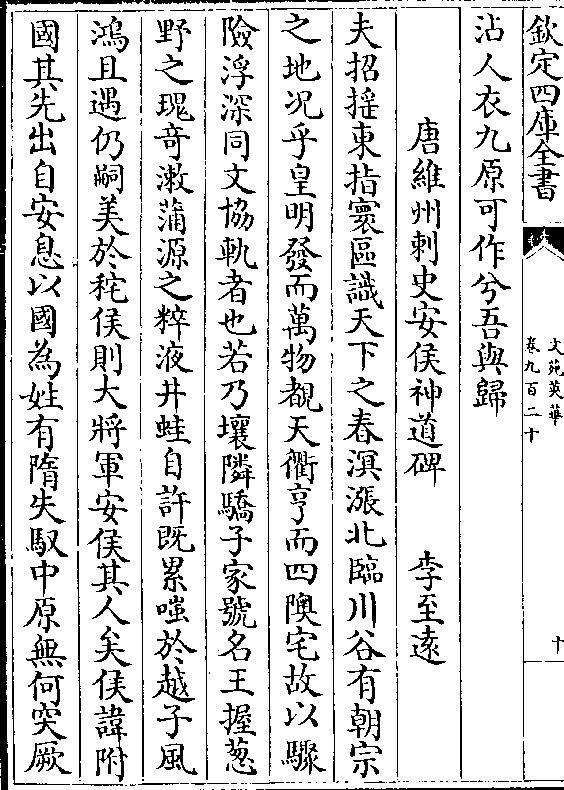 欽定四庫全書
文苑英華
卷九百二十
十
沾人衣九原可作兮吾與歸
唐維州刺史安侯神道碑 李至遠
夫招揺東指寰區識天下之春溟漲北臨川谷有朝宗
之地况乎皇明發而萬物覩天衢亨而四隩宅故以驟
險浮深同文協軌者也若乃壤隣驕子家號名王握葱
野之瑰奇漱蒲源之粹液井蛙自許既累嗤於越子風
鴻且遇仍嗣美於秺侯則大將軍安侯其人矣侯諱附
國其先出自安息以國為姓有隋失馭中原無何突厥